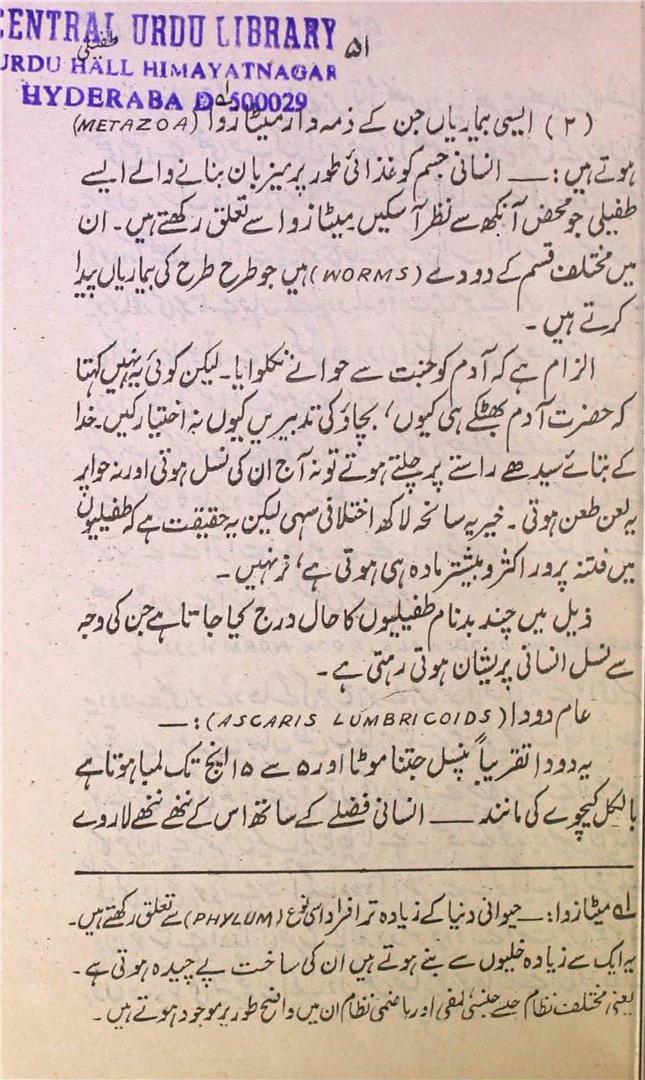 CENTRAL URDU LIBRARY
طفیلی
۵۱
URDU HALL HIMAYATNAGAR
HYDERABAD-500029
(۲) ایسی بیماریاں جن کے ذمہ دار میٹازوا (METAZOA)
ہوتے ہیں :— انسانی جسم کو غذائی طور پر میزبان بنانے والے ایسے
طفیلی جو محض آنکھ سے نظر آ سکیں میٹازوا سے تعلق رکھتے ہیں۔ ان
میں مختلف قسم کے دودے (WORMS) ہیں جو طرح طرح کی بیماریاں پیدا
کرتے ہیں۔
الزام ہے کہ آدم کو جنت سے حوا نے نکلوایا۔ لیکن کوئی یہ نہیں کہتا
کہ حضرت آدم بھٹکے ہی کیوں، بچاؤ کی تدبیریں کیوں نہ اختیار کیں۔ خدا
کے بتائے سیدھے راستے پر چلتے ہوتے تو نہ آج ان کی نسل ہوتی اور نہ حوا پر
یہ لعن طعن ہوتی۔ خیر یہ سانحہ لاکھ اختلافی سہی لیکن یہ حقیقت ہے کہ طفیلیوں
میں فتنہ پرور اکثر و بیشتر مادہ ہی ہوتی ہے، نر نہیں۔
ذیل میں چند بدنام طفیلیوں کا حال درج کیا جاتا ہے جن کی وجہ
سے نسل انسانی پریشان ہوتی رہتی ہے۔
عام دودا (ASCARIS LUMBRICOIDS) :—
یہ دودا تقریباً پنسل جتنا موٹا اور ۵ سے ۱۵ انچ تک لمبا ہوتا ہے
بالکل کیچوے کی مانند — انسانی فضلے کے ساتھ اس کے ننھے ننھے لاروے
؎۱ میٹازوا :— حیوانی دنیا کے زیادہ تر افراد اسی نوع (PHYLUM) سے تعلق رکھتے ہیں۔
یہ ایک سے زیادہ خلیوں سے بنے ہوتے ہیں ان کی ساخت پے چیدہ ہوتی ہے۔
یعنی مختلف نظام جیسے جنسی، لمفی اور ہاضمی نظام ان میں واضح طور پر موجود ہوتے ہیں۔